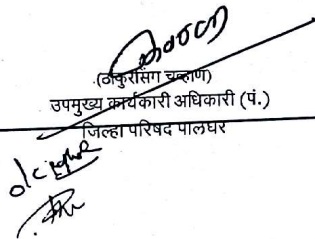 (ठाकुरसिंग चव्हाण)
उपमुख्य कार्यकारी अधिकारी (पं.)
जिल्हा परिषद पालघर
o/c